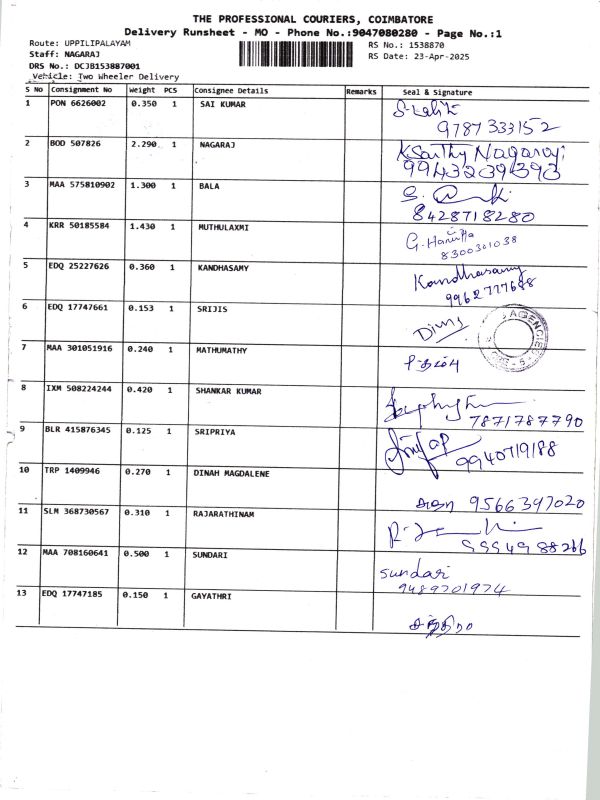 THE PROFESSIONAL COURIERS, COIMBATORE
Delivery Runsheet - MO - Phone No.:9047080280 - Page No.:1
Route: UPPILIPALAYAM
Staff: NAGARAJ
DRS No.: DCJB153887001
Vehicle: Two Wheeler Delivery
RS No.: 1538870
RS Date: 23-Apr-2025
S No Consignment No Weight PCS Consignee Details Remarks Seal & Signature
1 PON 6626002 0.350 1 SAI KUMAR
9787333152
2 BOD 507826 2.290 1 NAGARAJ K.Sarthy Nagaraj
9943239393
3 MAA 575810902 1.300 1 BALA
8428718280
4 KRR 50185584 1.430 1 MUTHULAXMI G. Haritta
8300301038
5 EDQ 25227626 0.360 1 KANDHASAMY Kandhasamy
9962777688
6 EDQ 17747661 0.153 1 SRIJIS
AGENCIES
7 MAA 301051916 0.240 1 MATHUMATHY
8 IXM 508224244 0.420 1 SHANKAR KUMAR
7871787790
9 BLR 415876345 0.125 1 SRIPRIYA
9940719188
10 TRP 1409946 0.270 1 DINAH MAGDALENE
9566397020
11 SLM 368730567 0.310 1 RAJARATHINAM
12 MAA 708160641 0.500 1 SUNDARI
sundari
9489701974
13 EDQ 17747185 0.150 1 GAYATHRI